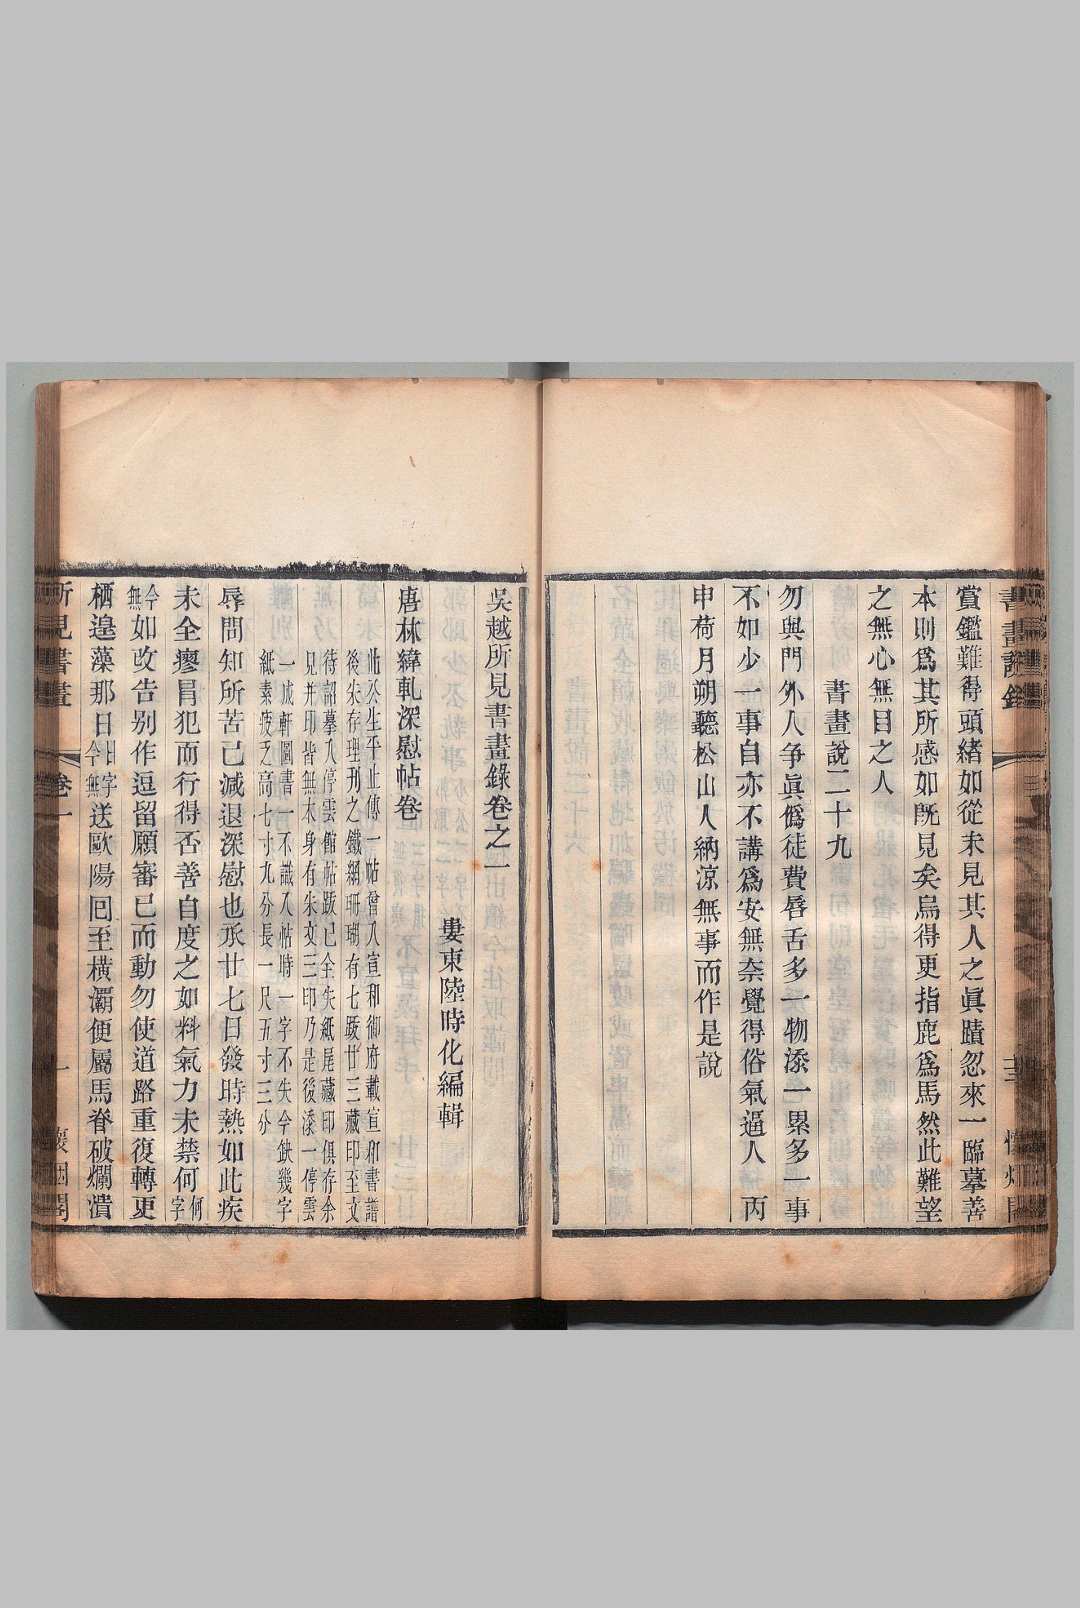 賞鑑難得頭緒如從未見其人之眞蹟忽來一臨摹善
本則爲其所感如旣見矣烏得更指鹿爲馬然此難望
之無心無目之人
書畫說二十九
勿與門外人争眞僞徒費唇舌多一物添一累多一事
不如少一事自亦不講爲安無奈覺得俗氣逼人 丙
申荷月朔聽松山人納凉無事而作是說
吳越所見書畫錄卷之一
婁東陸時化編輯
唐林緯乾深慰帖卷
此公生平止傳一帖曾入宣和御府載宣和書譜
後尖存理刋之鐵網珊瑚有七跋廿三藏印至文
待詔摹入停雲館帖跋已全失紙尾藏印俱存余
見并印皆無本身有朱文三印乃是後添一停雲
一城軒圖書一不識入帖時一字不失今缺幾字
紙素疲乏高七寸九分長一尺五寸三分
辱問知所苦已減退深慰也承廿七日發時熱如此疾
未全瘳冒犯而行得否善自度之如料氣力未禁何何字
今無如改告别作逗留願審已而動勿使道路重復轉更
栖遑藻那日日字今無送歐陽囘至橫灞便屬馬脊破爛潰
所見書畫 卷一 一 懷烟閣